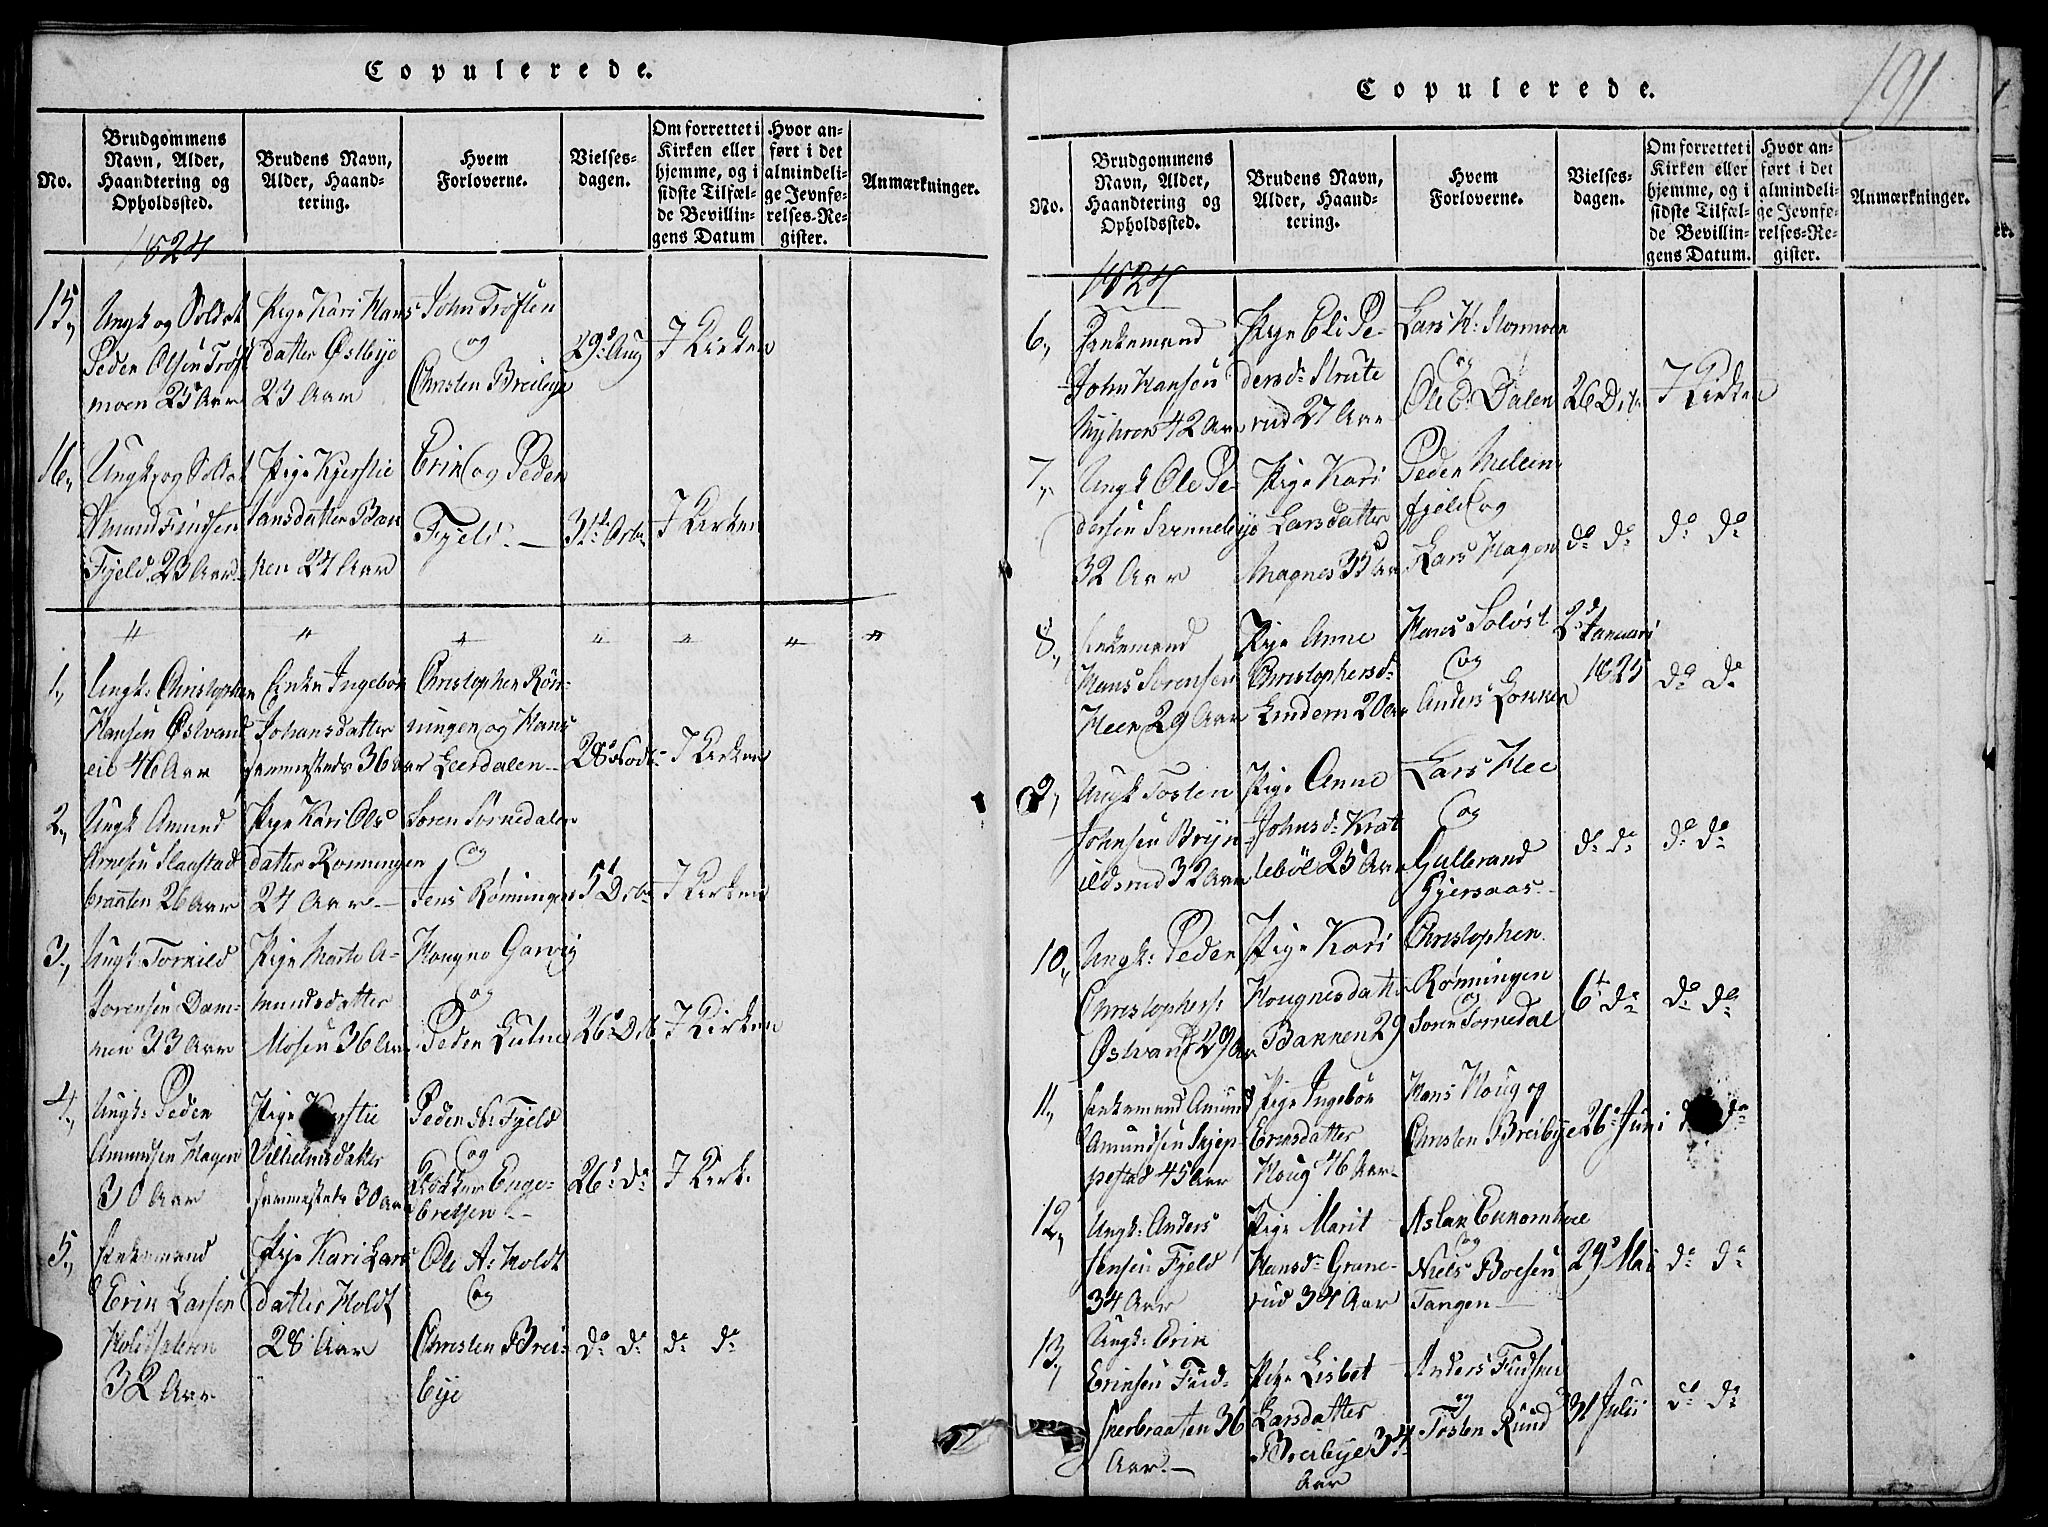 Copulerede.
No.
Brudgommens Navn, Alder, Haandtering og Opholdssted.
Brudens Navn, Alder, Haandtering.
Hvem Forloverne.
Vielsesdagen.
Om forrettet i Kirken eller hjemme, og i sidste Tilfælde Bevillingens Datum
Hvor anført i det almindelige Jevnførelses-Register.
Anmærkninger.
1824
15,
Ungk og Soldat
Peder Olsen
moen 25 Aar
Pige Kari Hans
datter Østbye
23 Aar
John
og
Christen Breibye
29d Aug
I Kirken
16,
Ungk. og Soldat
Amund
Fjeld 23 Aar
Pige Kjerstie
Bak
ken 24 Aar
Erik og Peder
Fjeld
31te
I Kirken
1,
Ungk: Christopher
Hansen Østvand
eie 46 Aar
Enke Ingebor
Johansdatter
sammesteds 36 Aar
Christopher Røn-
ningen og Hans
28d
I Kirken
2,
Ungk Amund
Arnesen Slaastad
braaten 26 Aar
Pige Kari Ols
datter Rønningen
24 Aar
Soren Sørnedalen
og
Jens Rønningen
5t Dcbr
I Kirken
3,
Ungk: Torkild
Sorensen Dam-
men 33 Aar
Pige Marte A-
mundsdatter
Mosen 36 Aar
Haagne Garvig
og
Peder
26d Dcb
I Kirken
4,
Ungk: Peder
Amundsen Hagen
30 Aar
Pige Kjerstie
Vilhelmsdatter
sammesteds 30 Aar
Peder Fjeld
og
Enge-
bretsen
26d do
I Kirk.
5,
Enkemand
Erik Larsen
32 Aar
Pige Kari Lars
datter Holdt
28 Aar
Ole A: Holdt
og
Christen Brei-
bye
do do
do do
Copulerede.
191
No.
Brudgommens Navn, Alder, Haandtering og Opholdssted.
Brudens Navn, Alder, Haandtering.
Hvem Forloverne.
Vielsesdagen.
Om forrettet i Kirken eller hjemme, og i sidste Tilfælde Bevillingens Datum.
Hvor anført i det almindelige Jevnførelses-Register.
Anmærkninger.
1824
6,
Enkemand
John Hansen
42 Aar
Pige Eli Pe-
dersd. Strute
rud 27 Aar
Lars H:
og
Ole E: Dalen
26 Dcb
I Kirken
7,
Ungk Ole Pe-
dersen
32 Aar
Pige Kari
Larsdatter
Magnes 35 Aar
Peder
fjeld og
Lars Hagen
do do
do do
8,
Enkemand
Hans Sorensen
Heen 29 Aar
Pige Anne
Christophersd.
Lindern 20 Aar
Hans Soløst
og
Anders Løkken
2d Januari
1825
do do
9,
Ungk Tosten
Johnsen Bryn-
ildsrud 32 Aar
Pige Anne
Johnsd. Krat
tebøl 25 Aar
Lars Hee
og
Gulbrand
Gjersaas
do do
do do
10,
Ungk: Peder
Christophers:
Østvand 29 Aar
Pige Kari
Hougnesdatter
Bakken 29
Christopher
Rønningen
og
Soren Sornedal
6t do
do do
11,
Enkemand Amund
Amundsen Skjep-
pestad 45 Aar
Pige Ingebor
Eriksdatter
Houg 46 Aar
Hans Houg og
Christen Breibye
26d Juni
do
12,
Ungk: Anders
Jensen Fjeld
34 Aar
Pige Marit
Hansd. Grane-
rud 34 Aar
Aslak
og
Niels Boesen
Tangen
29d Mai
do do
13,
Ungk: Erik
Eriksen
braaten 36
Aar.
Pige Lisbet
Larsdatter
Breibye 34
Aar
Anders
og
Tosten Rund
31 Julii
do do